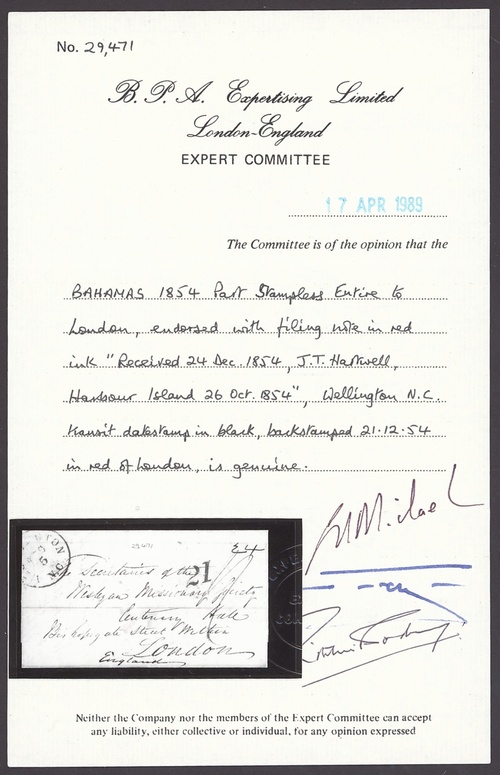 No. 29,471
B. P. A. Expertising Limited
London-England
EXPERT COMMITTEE
17 APR 1989
The Committee is of the opinion that the
BAHAMAS 1854 Part Stampless Entire to
London, endorsed with filing note in red
ink "Received 24 Dec. 1854, J.T. Hartwell,
Harbour Island 26 Oct. 1854", Wellington N.C.
transit datestamp in black, backstamped 21.12.54
in red of London, is genuine.
29471
21
Secretaries of the
Wesleyan Missionary Society
Centenary Hall
Bishopsgate Street Within
London
England
Neither the Company nor the members of the Expert Committee can accept
any liability, either collective or individual, for any opinion expressed